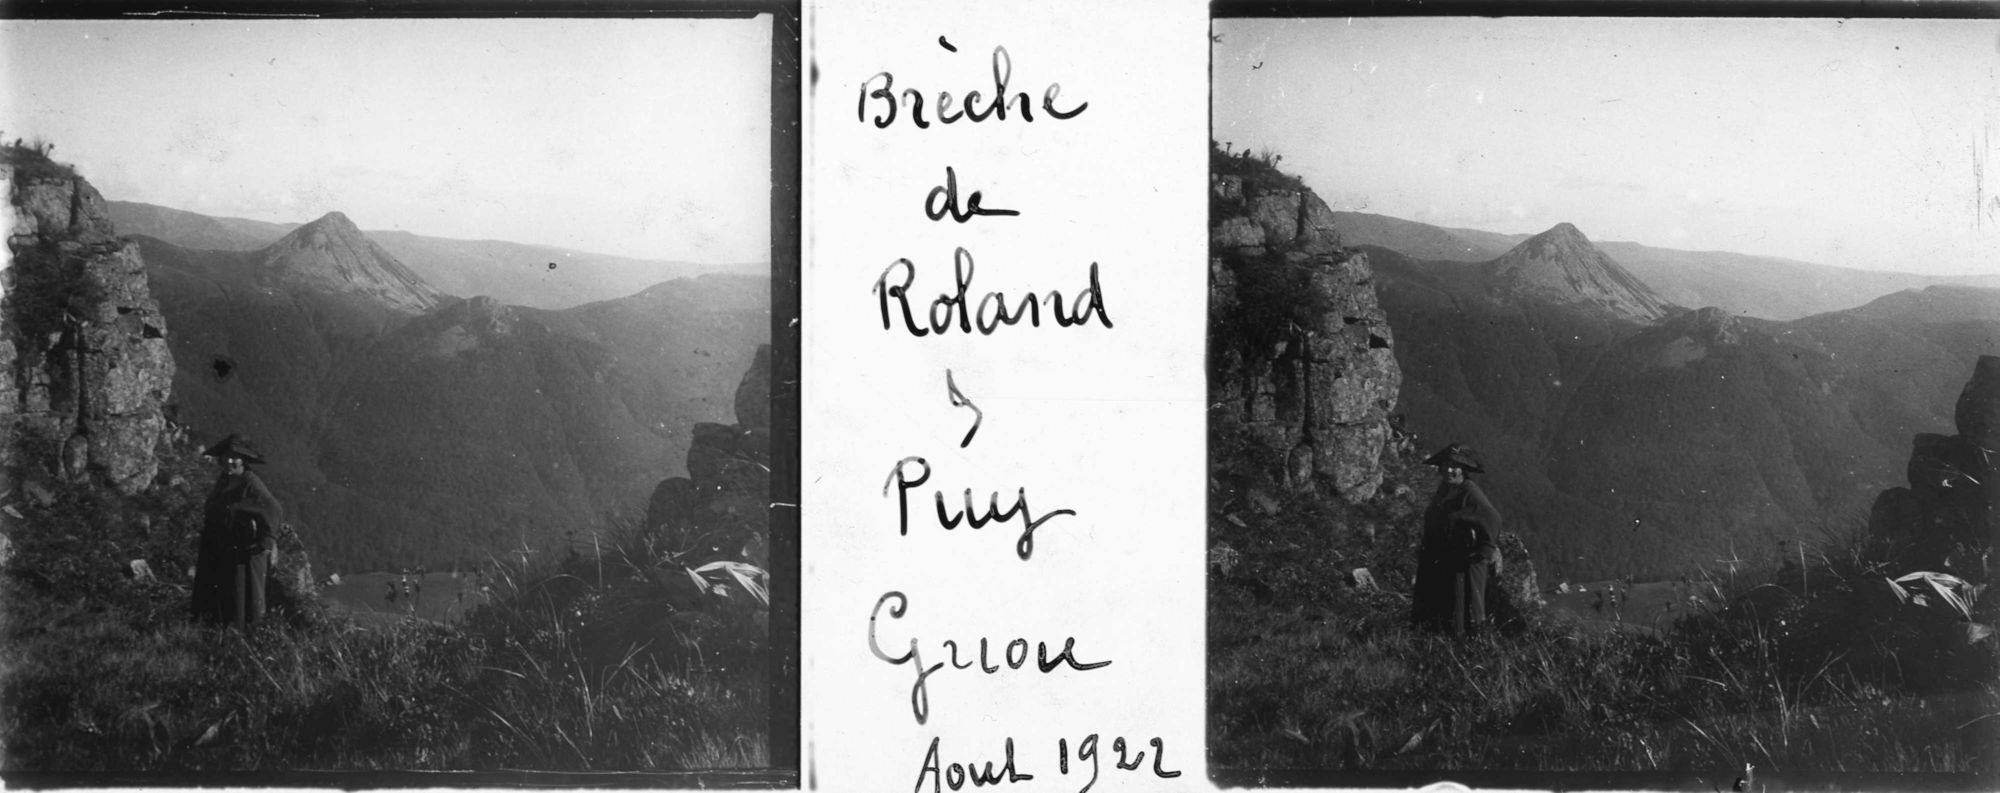 Brèche
de
Roland
&
Puy
Griou
Aout 1922